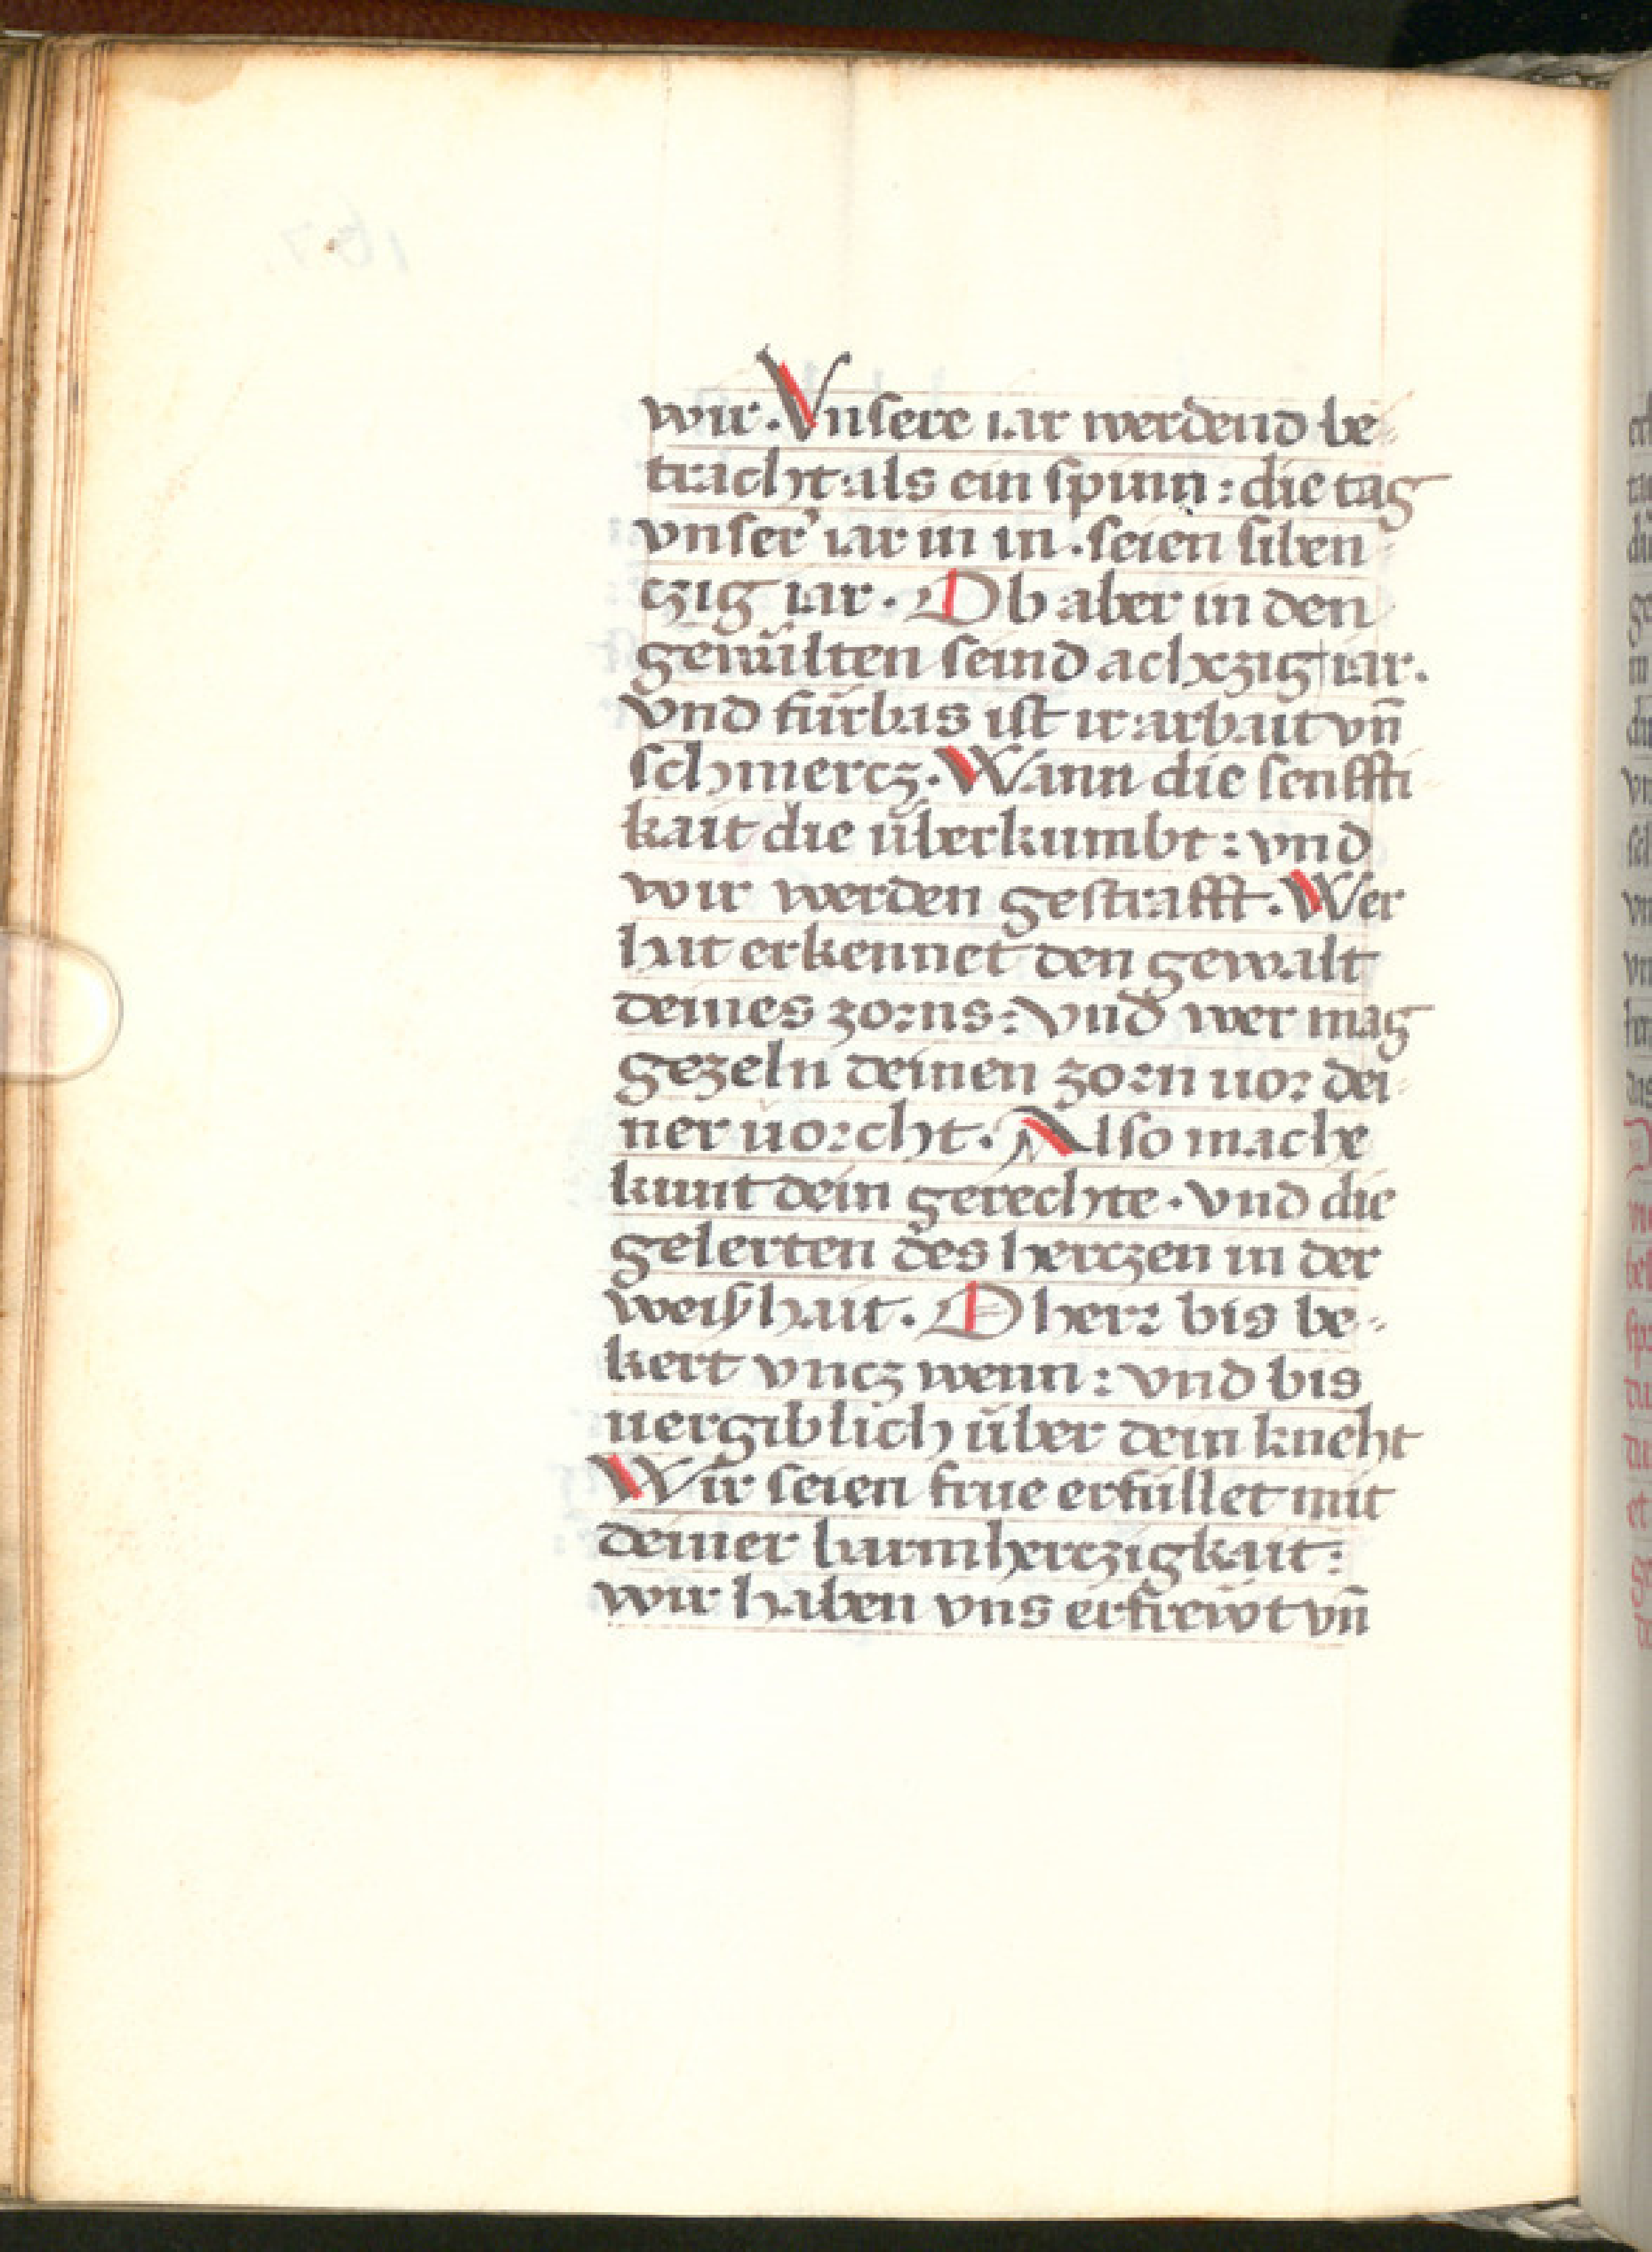 wir. Vnsere iar werdend be-
tracht als ein spinn : die tag
vnser' iar in in . seien siben
czig iar. Ob aber in den
gewälten seind achczig iar.
vnd fürbas ist ir arbait vn̄
schmercz. Wann die senffti
kait die überkumbt : vnd
wir werden gestrafft. Wer
hat erkennet den gewalt
deines zorns : vnd wer mag
gezeln deinen zorn uor dei-
ner uorcht. Also mache
kunt dein gerechte . vnd die
gelerten des herczen in der
weisshait. O herr bis be-
kert vncz wenn : vnd bis
uergiblich über dein knecht
Wir seien frue erfüllet mit
deiner barmherczigkait :
wir haben vns erfrewt vn̄